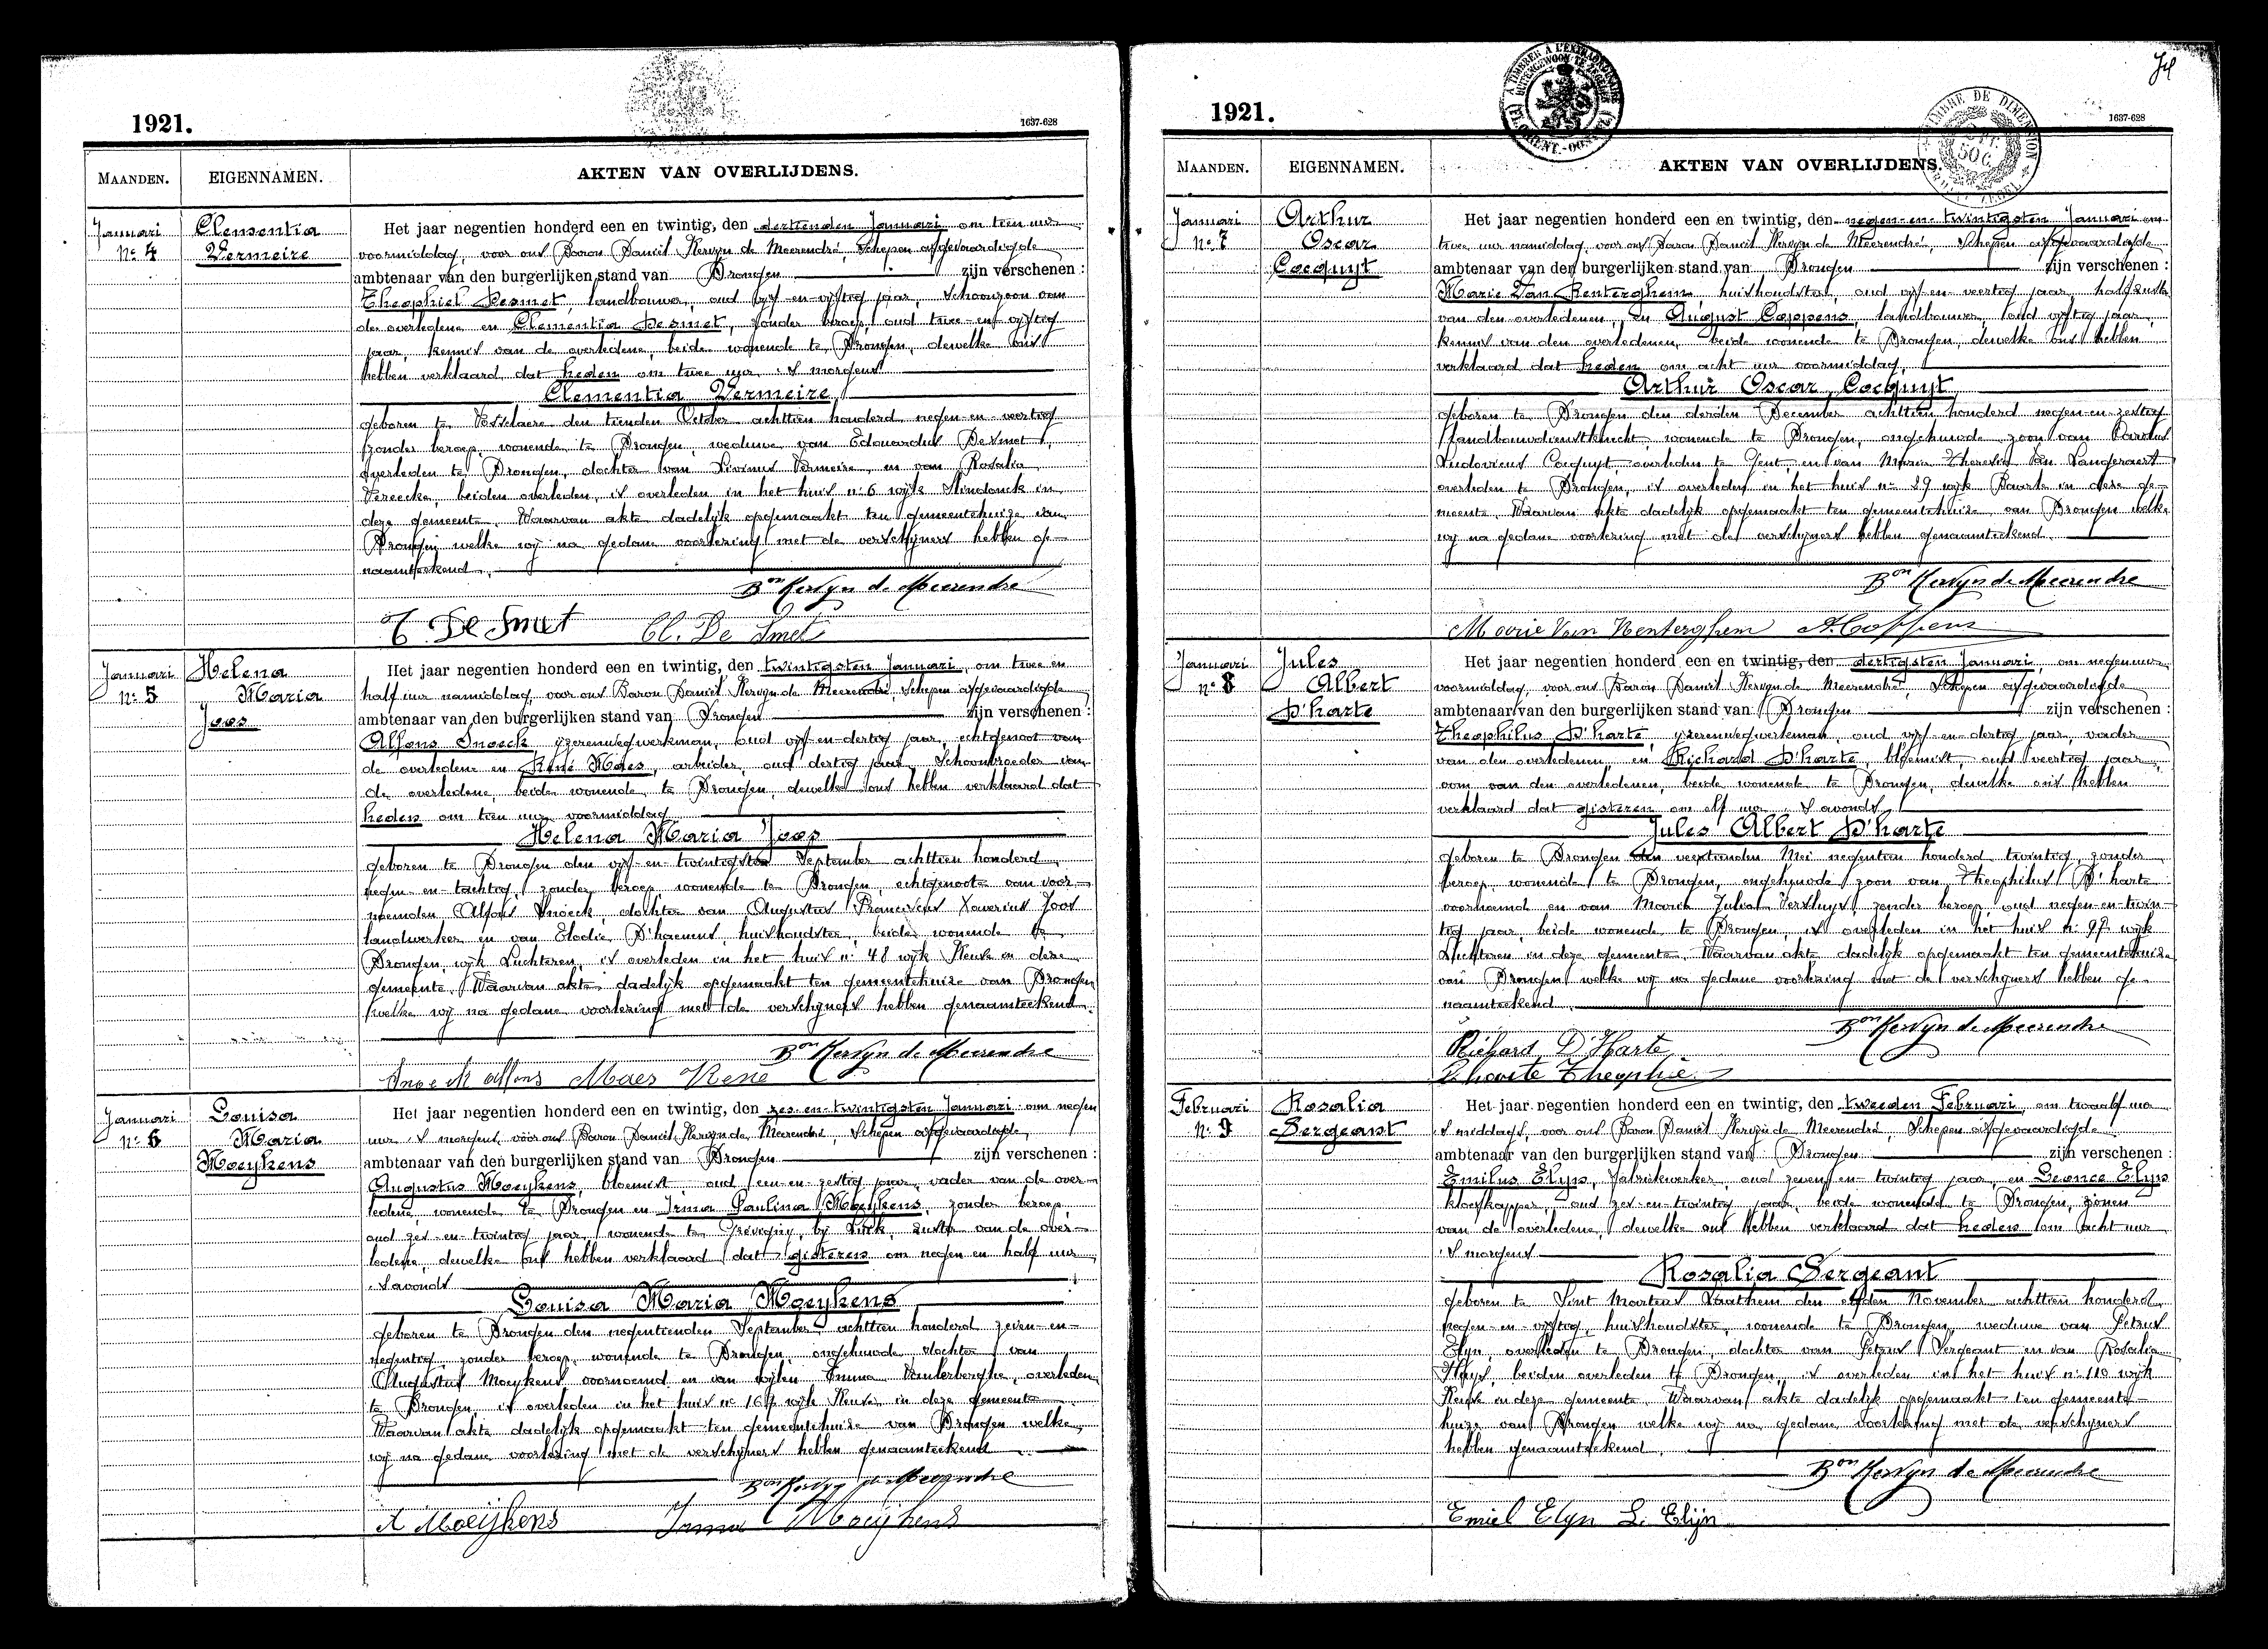 1921.
1637-628
MAANDEN.
EIGENNAMEN.
AKTEN VAN OVERLIJDENS.
Januari
No 4
Clementia
Vermeire
Het jaar negentien honderd een en twintig, den dertienden Januari om tien uur
voormiddag, voor ons Baron Daniël Kervyn de Meerendré, Schepen afgevaardigde
ambtenaar van den burgerlijken stand van Drongen zijn verschenen :
Theophiel Desmet, landbouwer, oud vijf-en-vijftig jaar, Schoonzoon van
de overledene en Clementia Desmet, zonder beroep, oud twee-en-vijftig
jaar, kennis van de overledene, beide wonende te Drongen, dewelke ons
hebben verklaard dat heden om twee uur 's morgens
Clementia Vermeire,
geboren te Vosselaere den tienden October achttien honderd negen-en-veertig
zonder beroep, wonende te Drongen, weduwe van Edouardus De Smet,
overleden te Drongen, dochter van Livinus Vermeire en van Rosalia
Vereecke, beiden overleden, is overleden in het huis no 6 wijk in
deze gemeente. Waarvan akte dadelijk opgemaakt ten gemeentehuize van
Drongen welke wij na gedane voorlezing met de verschijners hebben ge-
naamteekend.
Bon Kervyn de Meerendre
T. De Smet Cl. De Smet
Januari
no 5
Helena
Maria
Joos
Het jaar negentien honderd een en twintig, den twintigsten Januari, om twee en
half uur namiddag, voor ons Baron Daniël Kervyn de Meerendré, Schepen afgevaardigde
ambtenaar van den burgerlijken stand van Drongen zijn verschenen :
Alfons Snoeck, yzerenwegwerkman, oud vijf-en-dertig jaar, echtgenoot van
de overledene en René Maes, arbeider, oud dertig jaar, Schoonbroeder van
de overledene, beide wonende te Drongen, dewelke ons hebben verklaard dat
heden om tien uur voormiddag
Helena Maria Joos
geboren te Drongen den vijf-en-twintigsten September achttien honderd
negen-en-tachtig, zonder beroep, wonende te Drongen, echtgenoote van voor-
noemden Alfons Snoeck, dochter van Augustus Franciscus Xaverius Joos
landwerker en van Elodie D'haenens, huishoudster, beide wonende te
Drongen, wijk Luchteren, is overleden in het huis no 48 wijk Keuze in deze
gemeente. Waarvan akte dadelijk opgemaakt ten gemeentehuize van Drongen
welke wij na gedane voorlezing met de verschijners hebben genaamteekend.
Bon Kervyn de Meerendre
Snoeck Alfons Maes René
Januari
no 6
Louisa
Maria
Moeykens
Het jaar negentien honderd een en twintig, den zes-en-twintigsten Januari om negen
uur 's morgens, voor ons Baron Daniël Kervyn de Meerendré, Schepen afgevaardigde,
ambtenaar van den burgerlijken stand van Drongen zijn verschenen :
Augustus Moeykens, bloemist, oud een-en-zestig jaar, vader van de over-
ledene, wonende te Drongen en Irma Paulina Moeykens, zonder beroep,
oud zes-en-twintig jaar, wonende te bij Luik, zuster van de over-
ledene, dewelke ons hebben verklaard dat gisteren om negen en half uur
's avonds
Louisa Maria Moeykens
geboren te Drongen den negentienden September achttien honderd zeven-en-
negentig, zonder beroep, wonende te Drongen, ongehuwde dochter van
Augustus Moeykens voornoemd en van wijlen Emma Vanlerberghe, overleden
te Drongen, is overleden in het huis no 167 wijk Keuze in deze gemeente
Waarvan akte dadelijk opgemaakt ten gemeentehuize van Drongen welke
wij na gedane voorlezing met de verschijners hebben genaamteekend
Bon Kervyn de Meerendre
A Moeijkens Irma Moeijkens
74
A L'EXTRAORDINAIRE
TIMBRE DE DIMENSION
50 C.
1921.
1637-628
MAANDEN.
EIGENNAMEN.
AKTEN VAN OVERLIJDENS.
Januari
No 7
Arthur
Oscar
Cocquyt
Het jaar negentien honderd een en twintig, den negen-en-twintigsten Januari om
twee uur namiddag, voor ons Baron Daniël Kervyn de Meerendré, Schepen afgevaardigde
ambtenaar van den burgerlijken stand van Drongen zijn verschenen :
Marie Van Renterghem, huishoudster, oud vijf-en-veertig jaar, halfzuster
van den overledenen, en August Coppens, landbouwer, oud vijftig jaar,
kennis van den overledenen, beide wonende te Drongen, dewelke ons hebben
verklaard dat heden om acht uur voormiddag,
Arthur Oscar Cocquyt
geboren te Drongen den derden December achttien honderd negen-en-zestig
landbouwdienstknecht, wonende te Drongen, ongehuwde zoon van Carolus
Ludovicus Cocquyt, overleden te Gent, en van Maria Theresia Van Langeraert
overleden te Drongen, is overleden in het huis no 29 wijk Baarle in deze ge-
meente. Waarvan akte dadelijk opgemaakt ten gemeentehuize van Drongen welke
wij na gedane voorlezing met de verschijners hebben genaamteekend.
Bon Kervyn de Meerendre
Marie Van Renterghem A. Coppens
Januari
no 8
Jules
Albert
D'harte
Het jaar negentien honderd een en twintig, den dertigsten Januari, om negen uur
voormiddag, voor ons Baron Daniël Kervyn de Meerendré, Schepen afgevaardigde
ambtenaar van den burgerlijken stand van Drongen zijn verschenen :
Theophilus D'harte, yzerenwegwerkman, oud vijf-en-dertig jaar, vader
van den overledenen, en Richard D'harte, bloemist, oud veertig jaar,
oom van den overledenen, beide wonende te Drongen, dewelke ons hebben
verklaard dat gisteren om elf uur 's avonds,
Jules Albert D'harte
geboren te Drongen den veertienden Mei negentien honderd twintig, zonder
beroep, wonende te Drongen, ongehuwde zoon van Theophilus D'harte
voornoemd en van Maria Julia Versluys, zonder beroep, oud negen-en-twin-
tig jaar, beide wonende te Drongen, is overleden in het huis no 97 wijk
Luchteren in deze gemeente. Waarvan akte dadelijk opgemaakt ten gemeentehuize
van Drongen welke wij na gedane voorlezing met de verschijners hebben ge-
naamteekend.
Bon Kervyn de Meerendre
Richard D'Harte
Dharte Theophiel
Februari
No 9
Rosalia
Sergeant
Het jaar negentien honderd een en twintig, den tweeden Februari, om twaalf uur
's middags, voor ons Baron Daniël Kervyn de Meerendré, Schepen afgevaardigde
ambtenaar van den burgerlijken stand van Drongen zijn verschenen :
Emilus Elyn, fabriekwerker, oud zeven-en-twintig jaar, en Leonce Elyn
kloefkapper, oud zes-en-twintig jaar, beide wonende te Drongen, zonen
van de overledene, dewelke ons hebben verklaard dat heden om acht uur
's morgens
Rosalia Sergeant
geboren te Sint Martens Laathem den elfden November achttien honderd
negen-en-vijftig, huishoudster, wonende te Drongen, weduwe van Petrus
Elyn, overleden te Drongen, dochter van Petrus Sergeant en van Rosalia
Huys, beiden overleden te Drongen, is overleden in het huis no 110 wijk
Keuze in deze gemeente. Waarvan akte dadelijk opgemaakt ten gemeente-
huize van Drongen welke wij na gedane voorlezing met de verschijners
hebben genaamteekend.
Bon Kervyn de Meerendre
Emiel Elyn L. Elijn